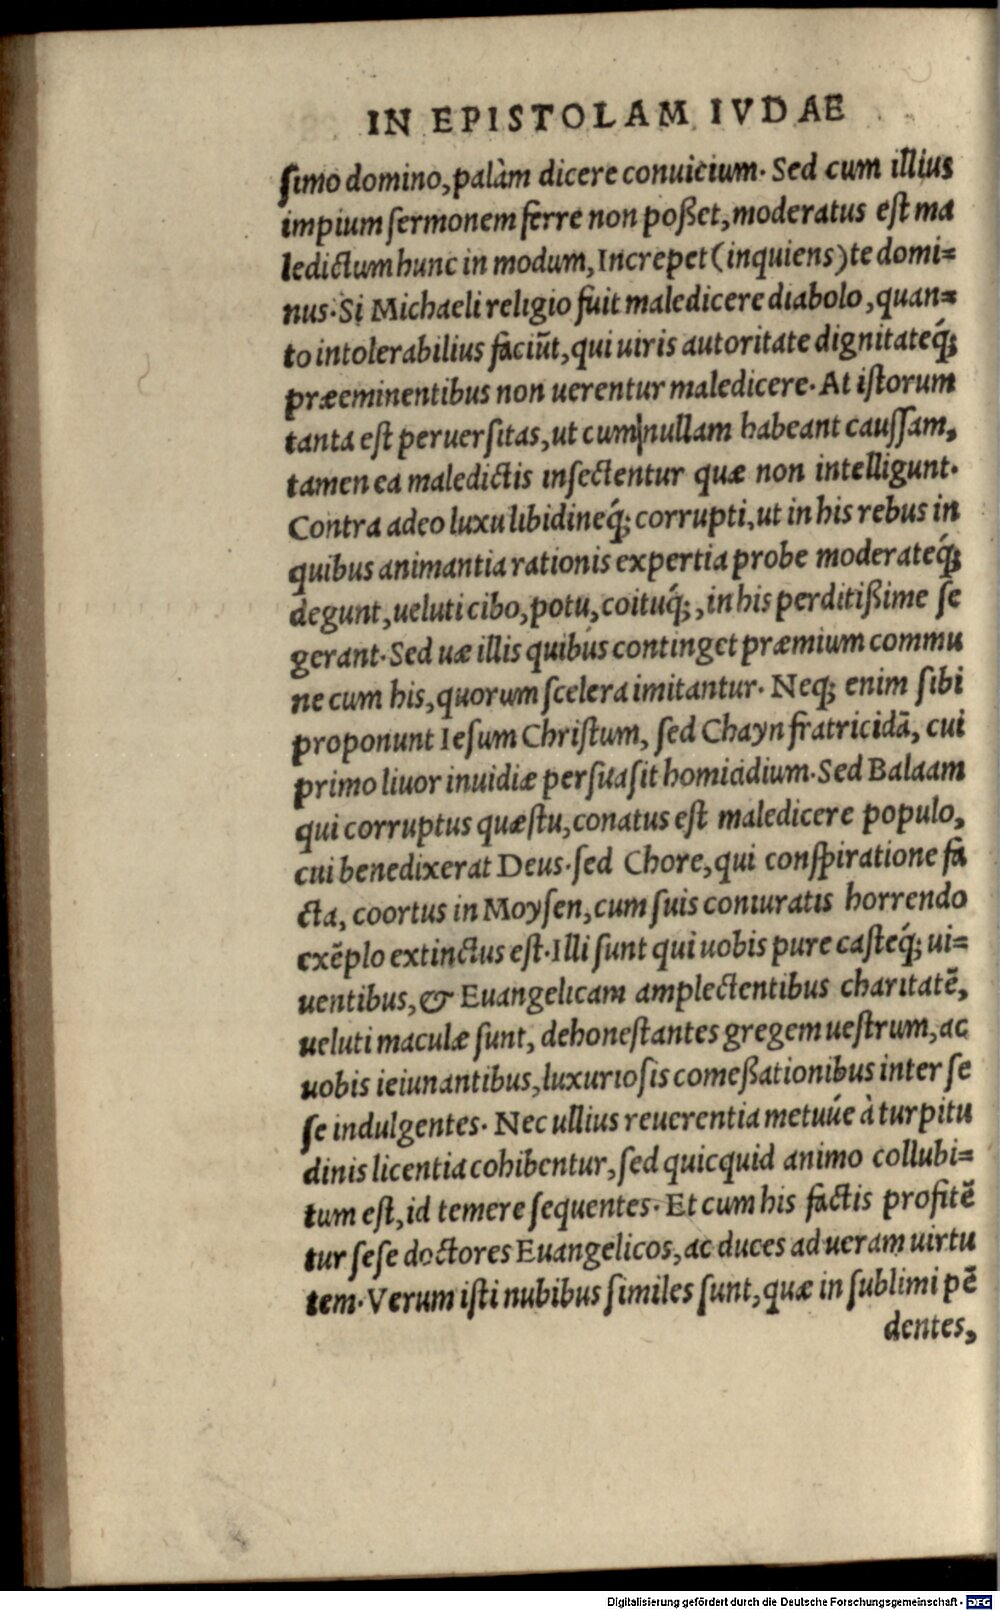 IN EPISTOLAM IVDAE
ſimo domino, palàm dicere conuicium. Sed cum illius
impium ſermonem ferre non poßet, moderatus eſt ma
ledictum hunc in modum, Increpet (inquiens) te domi=
nus. Si Michaeli religio fuit maledicere diabolo, quan=
to intolerabilius faciūt, qui uiris autoritate dignitateq́;
præeminentibus non uerentur maledicere. At iſtorum
tanta eſt peruerſitas, ut cum nullam habeant cauſſam,
tamen ea maledictis inſectentur quæ non intelligunt.
Contra adeo luxu libidineq́; corrupti, ut in his rebus in
quibus animantia rationis expertia probe moderateq́;
degunt, ueluti cibo, potu, coituq́;, in his perditißime ſe
gerant. Sed uæ illis quibus continget præmium commu
ne cum his, quorum ſcelera imitantur. Neq; enim ſibi
proponunt Ieſum Chriſtum, ſed Chayn fratricidā, cui
primo liuor inuidiæ perſuaſit homicidium. Sed Balaam
qui corruptus quæſtu, conatus eſt maledicere populo,
cui benedixerat Deus. ſed Chore, qui conſpiratione fa
cta, coortus in Moyſen, cum ſuis coniuratis horrendo
exēplo extinctus eſt. Illi ſunt qui uobis pure caſteq́; ui=
uentibus, & Euangelicam amplectentibus charitatē,
ueluti maculæ ſunt, dehoneſtantes gregem ueſtrum, ac
uobis ieiunantibus, luxurioſis comeßationibus inter ſe
ſe indulgentes. Nec ullius reuerentia metuúe à turpitu
dinis licentia cohibentur, ſed quicquid animo collubi=
tum eſt, id temere ſequentes. Et cum his factis profitē
tur ſeſe doctores Euangelicos, ac duces ad ueram uirtu
tem. Verum iſti nubibus ſimiles ſunt, quæ in ſublimi pē
dentes,
Digitalisierung gefördert durch die Deutsche Forschungsgemeinschaft - DFG